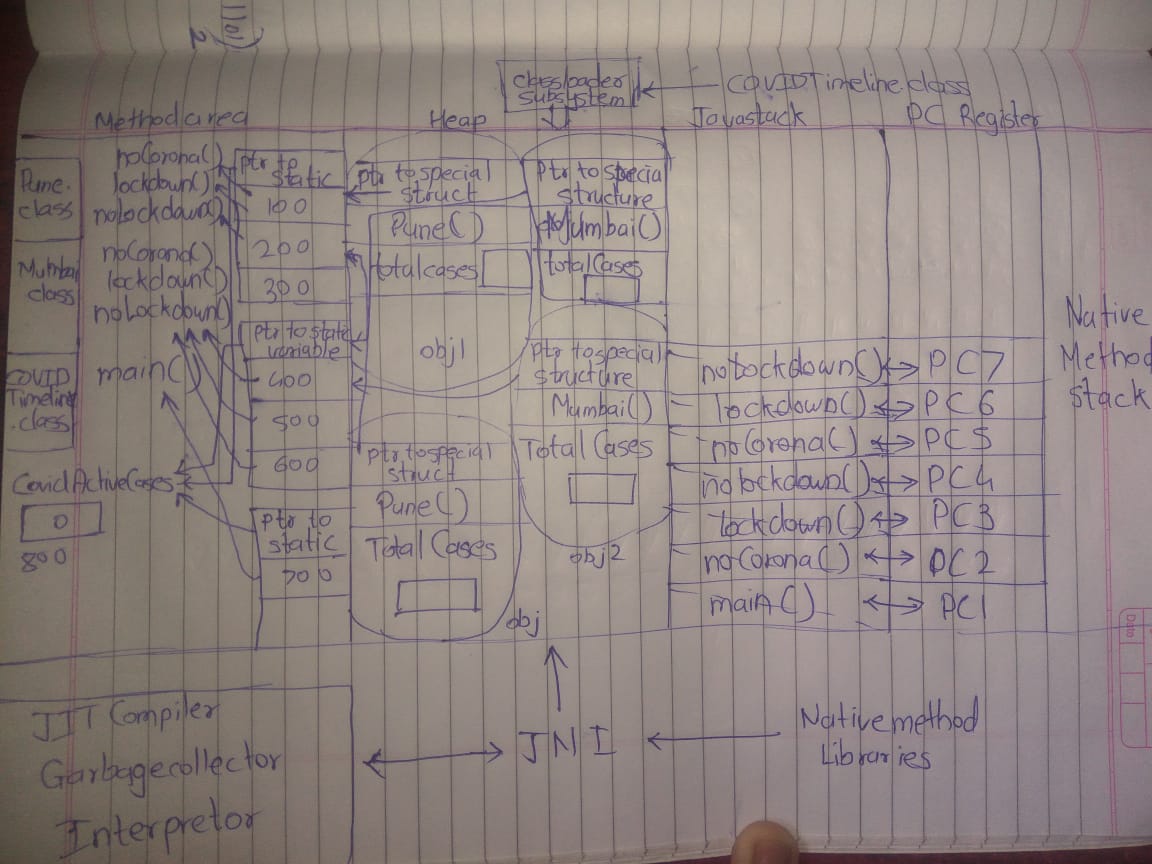 classloader
subsystem
COVIDTimeline.class
Method area
Heap
Javastack
PC Register
Pune.
class
Mumbai
class
COVID
Timeline
.class
noCorona()
lockdown()
nolockdown()
noCorona()
lockdown()
noLockdown()
main()
CovidActiveCases
0
800
ptr to
static
100
200
300
ptr to static
variable
400
500
600
ptr to
static
700
ptr to special
struct
Pune()
totalcases
obj1
ptr to special
struct
Pune()
Total Cases
obj
ptr to special
structure
Mumbai()
total Cases
ptr to special
structure
Mumbai()
Total Cases
obj2
nolockdown() PC7
lockdown() PC6
noCorona() PC5
nolockdown() PC4
lockdown() PC3
noCorona() PC2
main() PC1
Native
Method
Stack
JIT Compiler
Garbagecollector
Interpretor
JNI
Nativemethod
Libraries
Date